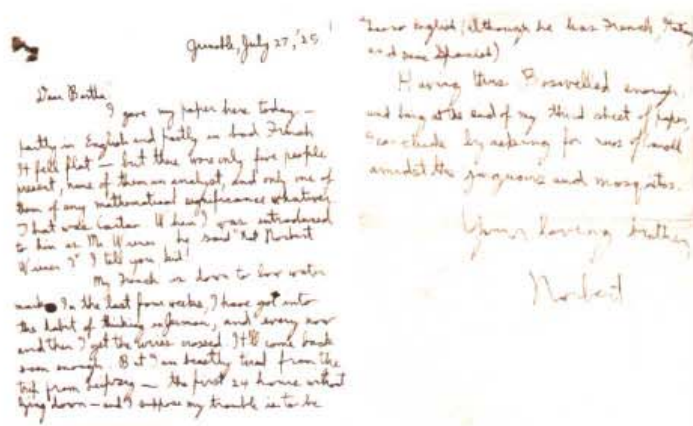 Grenoble, July 27, '25
Dear Bertha,
I gave my paper here today —
partly in English and partly in bad French
It fell flat — but there were only five people
present, none of them an analyst, and only one of
them of any mathematical significance whatever
That was Cartan. When I was introduced
to him as Mr Wiener he said "Not Norbert
Wiener?" I tell you, kid!
My French is down to low water
mark. In the last four weeks, I have got into
the habit of thinking in German, and every now
and then I get the wires crossed. It'll come back
soon enough. But I am beastly tired from the
trip from Leipzig — the first 24 hours without
lying down — and I suppose my trouble is to be
no English (although he has French,
and some Spanish)
Having thus Boswelled enough,
and being at the end of my third sheet of paper,
I conclude by asking for news of
amidst the jaguars and mosquitos.
Your loving brother,
Norbert